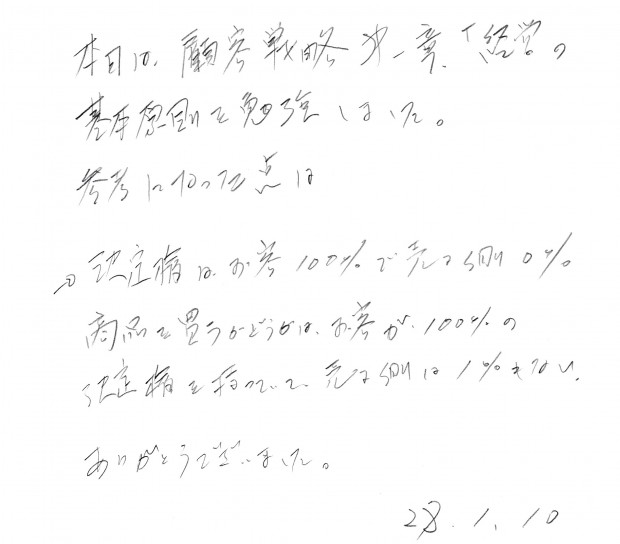 本日は、顧客戦略第一章、「経営の
基本原則を勉強しました。
参考になった点は
→決定権は、お客100%で売る側0%
商品を買うかどうかは、お客が、100%の
決定権を持っていて、売る側は1%もない。
ありがとうございました。
28.1.10